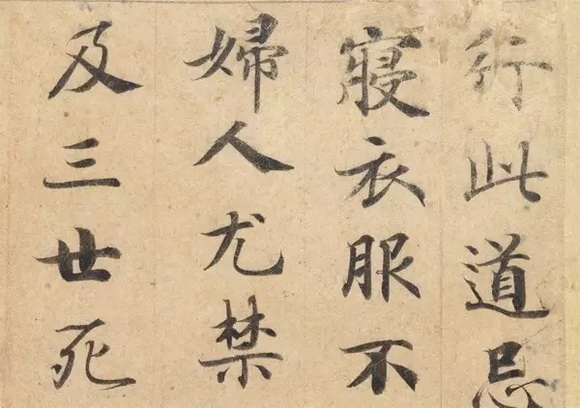 行此道忌
寢衣服不
婦人尤禁
及三世死